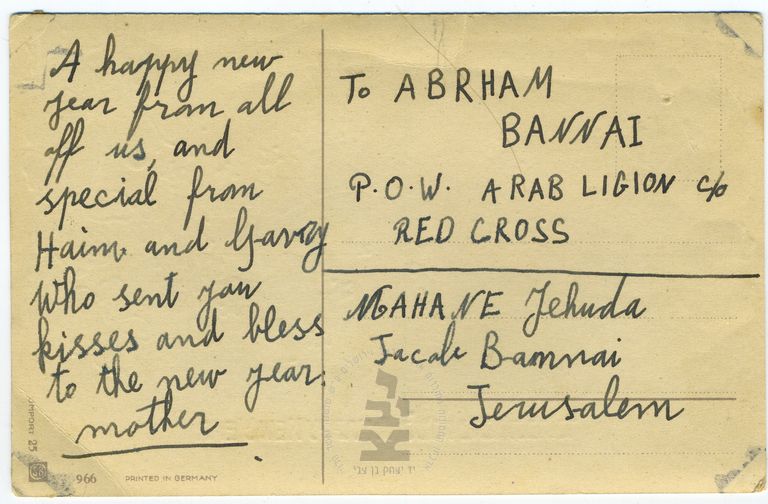 A happy new
year from all
off us, and
special from
Haim and
Who sent you
kisses and bless
to the new year.
mother
To ABRHAM
BANNAI
P.O.W. ARAB LIGION c/o
RED CROSS
MAHANE Jehuda
Jacob Bamnai
Jerusalem
966 PRINTED IN GERMANY